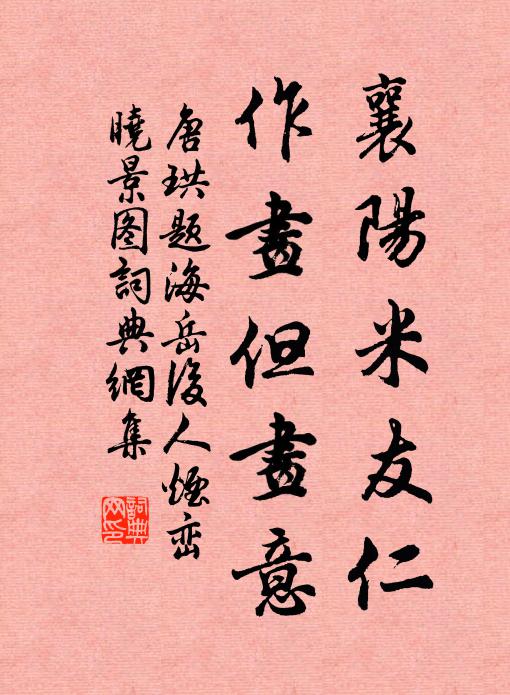 襄陽米友仁
作畫但畫意
唐珙题海岳後人烟峦
曉景图詞典網集
詞典网印